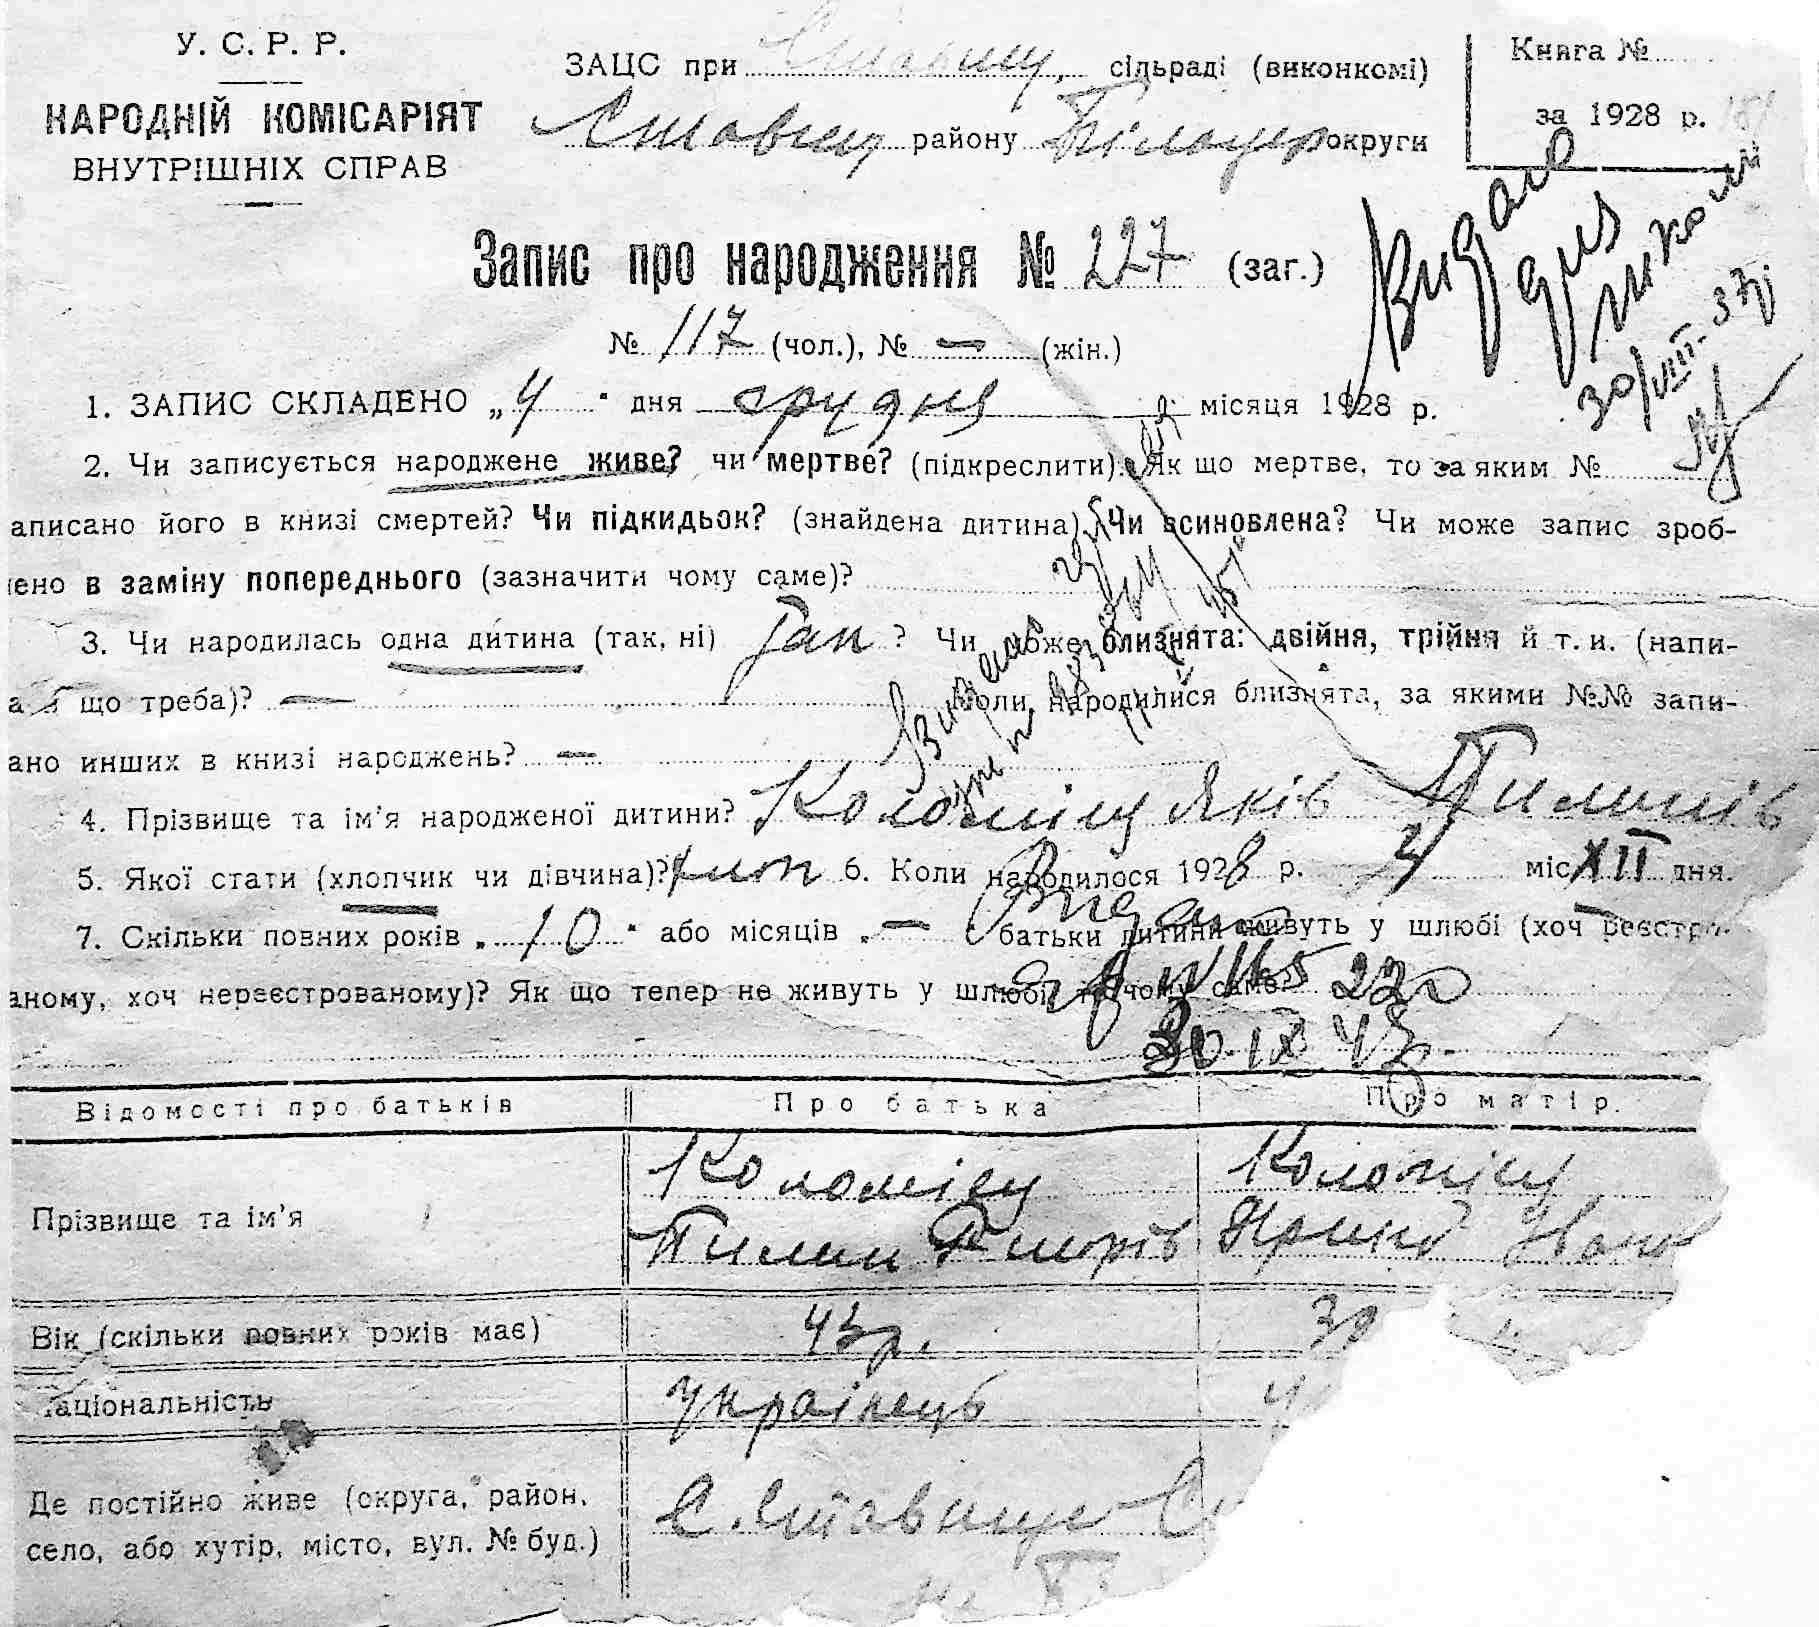 У. С. Р. Р.
НАРОДНІЙ КОМІСАРІЯТ
ВНУТРІШНІХ СПРАВ
ЗАЦС при Ставищ. сільраді (виконкомі)
Ставищ району Білоцер округи
Книга №
за 1928 р.
Видано
для
школи
30/VIII-37р
Запис про народження № 227 (заг.)
№ 117 (чол.), № — (жін.)
1. ЗАПИС СКЛАДЕНО „4" дня грудня місяця 1928 р.
2. Чи записується народжене живе? чи мертве? (підкреслити). Як що мертве, то за яким №
аписано його в книзі смертей? Чи підкидьок? (знайдена дитина). Чи всиновлена? Чи може запис зроб-
ено в заміну попереднього (зазначити чому саме)?
3. Чи народилась одна дитина (так, ні) Так ? Чи може близнята: двійня, трійня й т. и. (напи-
а що треба)? — Коли народилися близнята, за якими №№ запи-
ано инших в книзі народжень? —
4. Прізвище та ім'я народженої дитини? Коломієць Яків Пилипів
5. Якої стати (хлопчик чи дівчина)? хлоп 6. Коли народилося 1928 р. 4 міс XII дня.
7. Скільки повних років „10" або місяців „— батьки дитини живуть у шлюбі (хоч реєстро-
аному, хоч нереєстрованому)? Як що тепер не живуть у шлюбі, то чому саме
30.IX 43
Відомості про батьків Про батька Про матір.
Прізвище та ім'я
Коломієць Коломієць
Пилип Ярина Івано
Вік (скільки повних років має) 43р. 39
аціональність Українець У
Де постійно живе (округа, район,
село, або хутір, місто, вул. № буд.)
С. Ставище